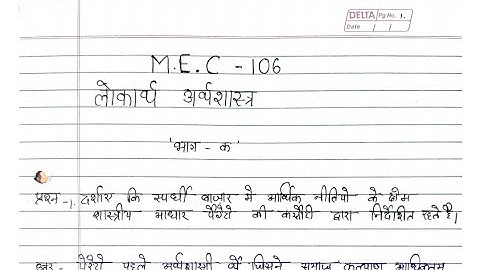 DELTA Pg No. 1.
Date / /
M.E.C - 106
लोकार्थ अर्थशास्त्र
'भाग - क'
प्रश्न -1. दर्शाए कि स्पर्धी बाजार मे आर्थिक नीतियो के क्षेम
शास्त्रीय आधार पैरेटो की कसौटी द्वारा निर्देशित रहते है।
पैरेटो पहले अर्थशास्त्री थे जिसने समाज कल्याण